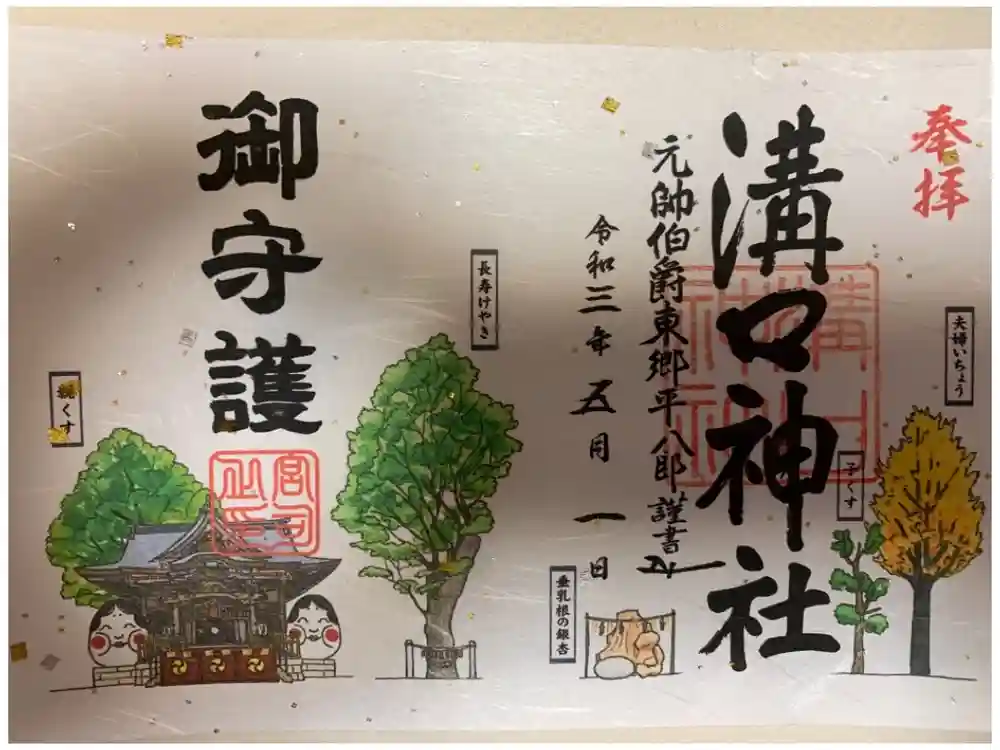 奉拝
夫婦いちょう
溝口神社
子くす
元帥伯爵東郷平八郎謹書
令和三年五月一日
垂乳根の銀杏
長寿けやき
御守護
親くす